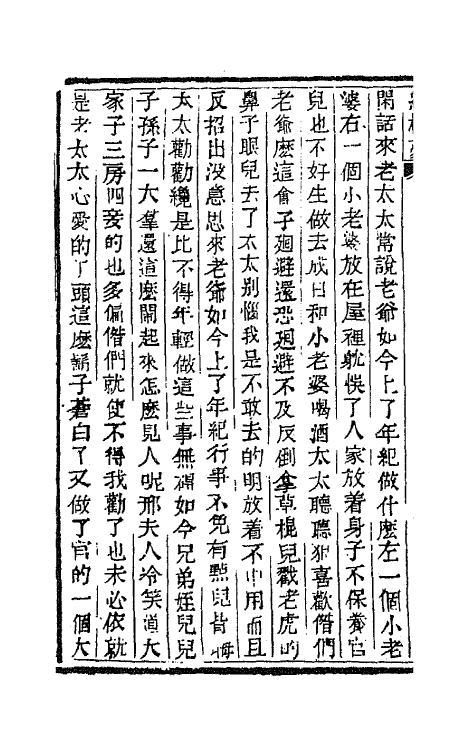 閑話來老太太常說老爺如今上了年紀做什麽左一個小老
婆右一個小老婆放在屋裡躭悞了人家放着身子不保養官
兒也不好生做去成日和小老婆喝酒太太聽聽狠喜歡偺們
老爺麽這會子廻避還恐廻避不及反倒拿草棍兒戳老虎的
鼻子眼兒去了太太别惱我是不敢去的明放着不中用而且
反招出沒意思來老爺如今上了年紀行事不免有㸃兒背晦
太太勸勸纔是比不得年輕做這些事無碍如今兄弟姪兒兒
子孫子一大羣還這麽鬧起來怎麽見人呢邢夫人冷笑道大
家子三房四妾的也多偏偺們就使不得我勸了也未必依就
是老太太心愛的丫頭這麽鬍子蒼白了又做了官的一個大